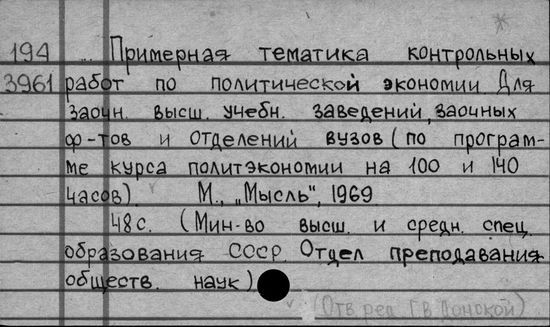 194 ... Примерная тематика контрольных
3961 работ по политической экономии Для
заочн. высш. учебн. заведений, заочных
ф-тов и отделений вузов (по програм-
ме курса политэкономии на 100 и 140
часов). М., „Мысль", 1969
48с. (Мин-во высш. и средн. спец.
образования СССР. Отдел преподавания
обществ. наук)
(Отв ред Г.В Донской)